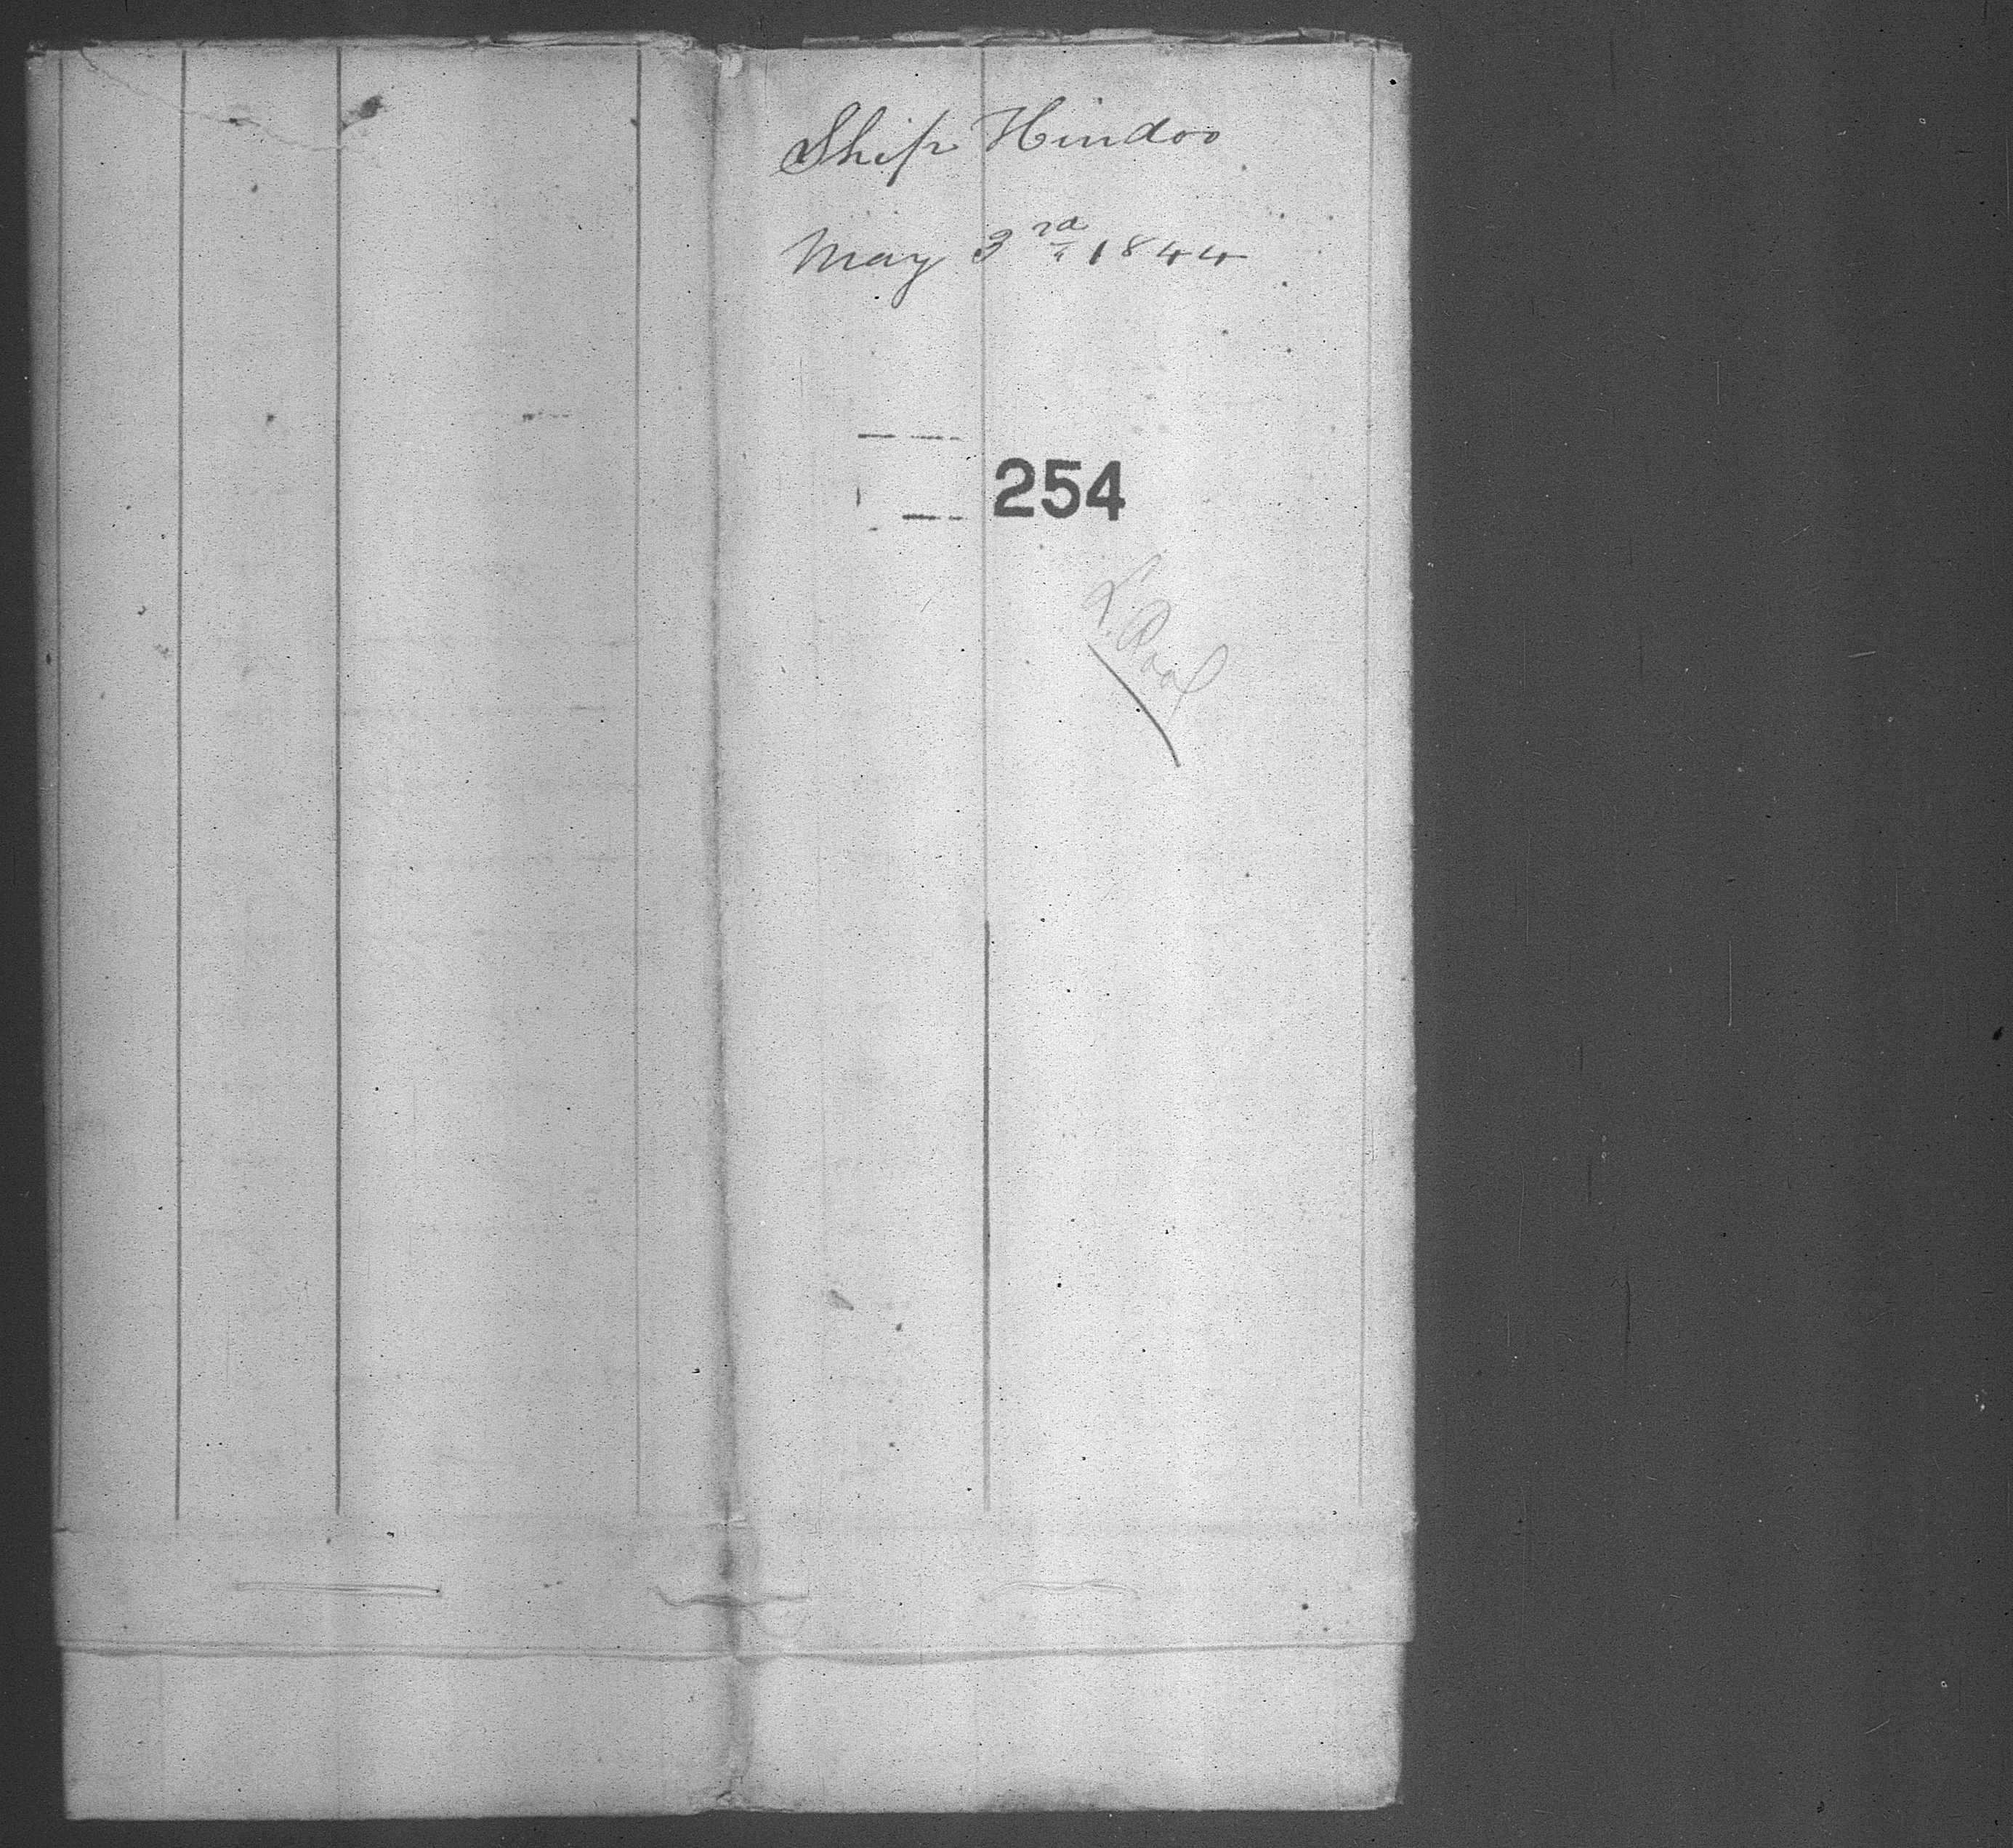 Ship Hindoo
May 3rd 1844
254
L. Pool